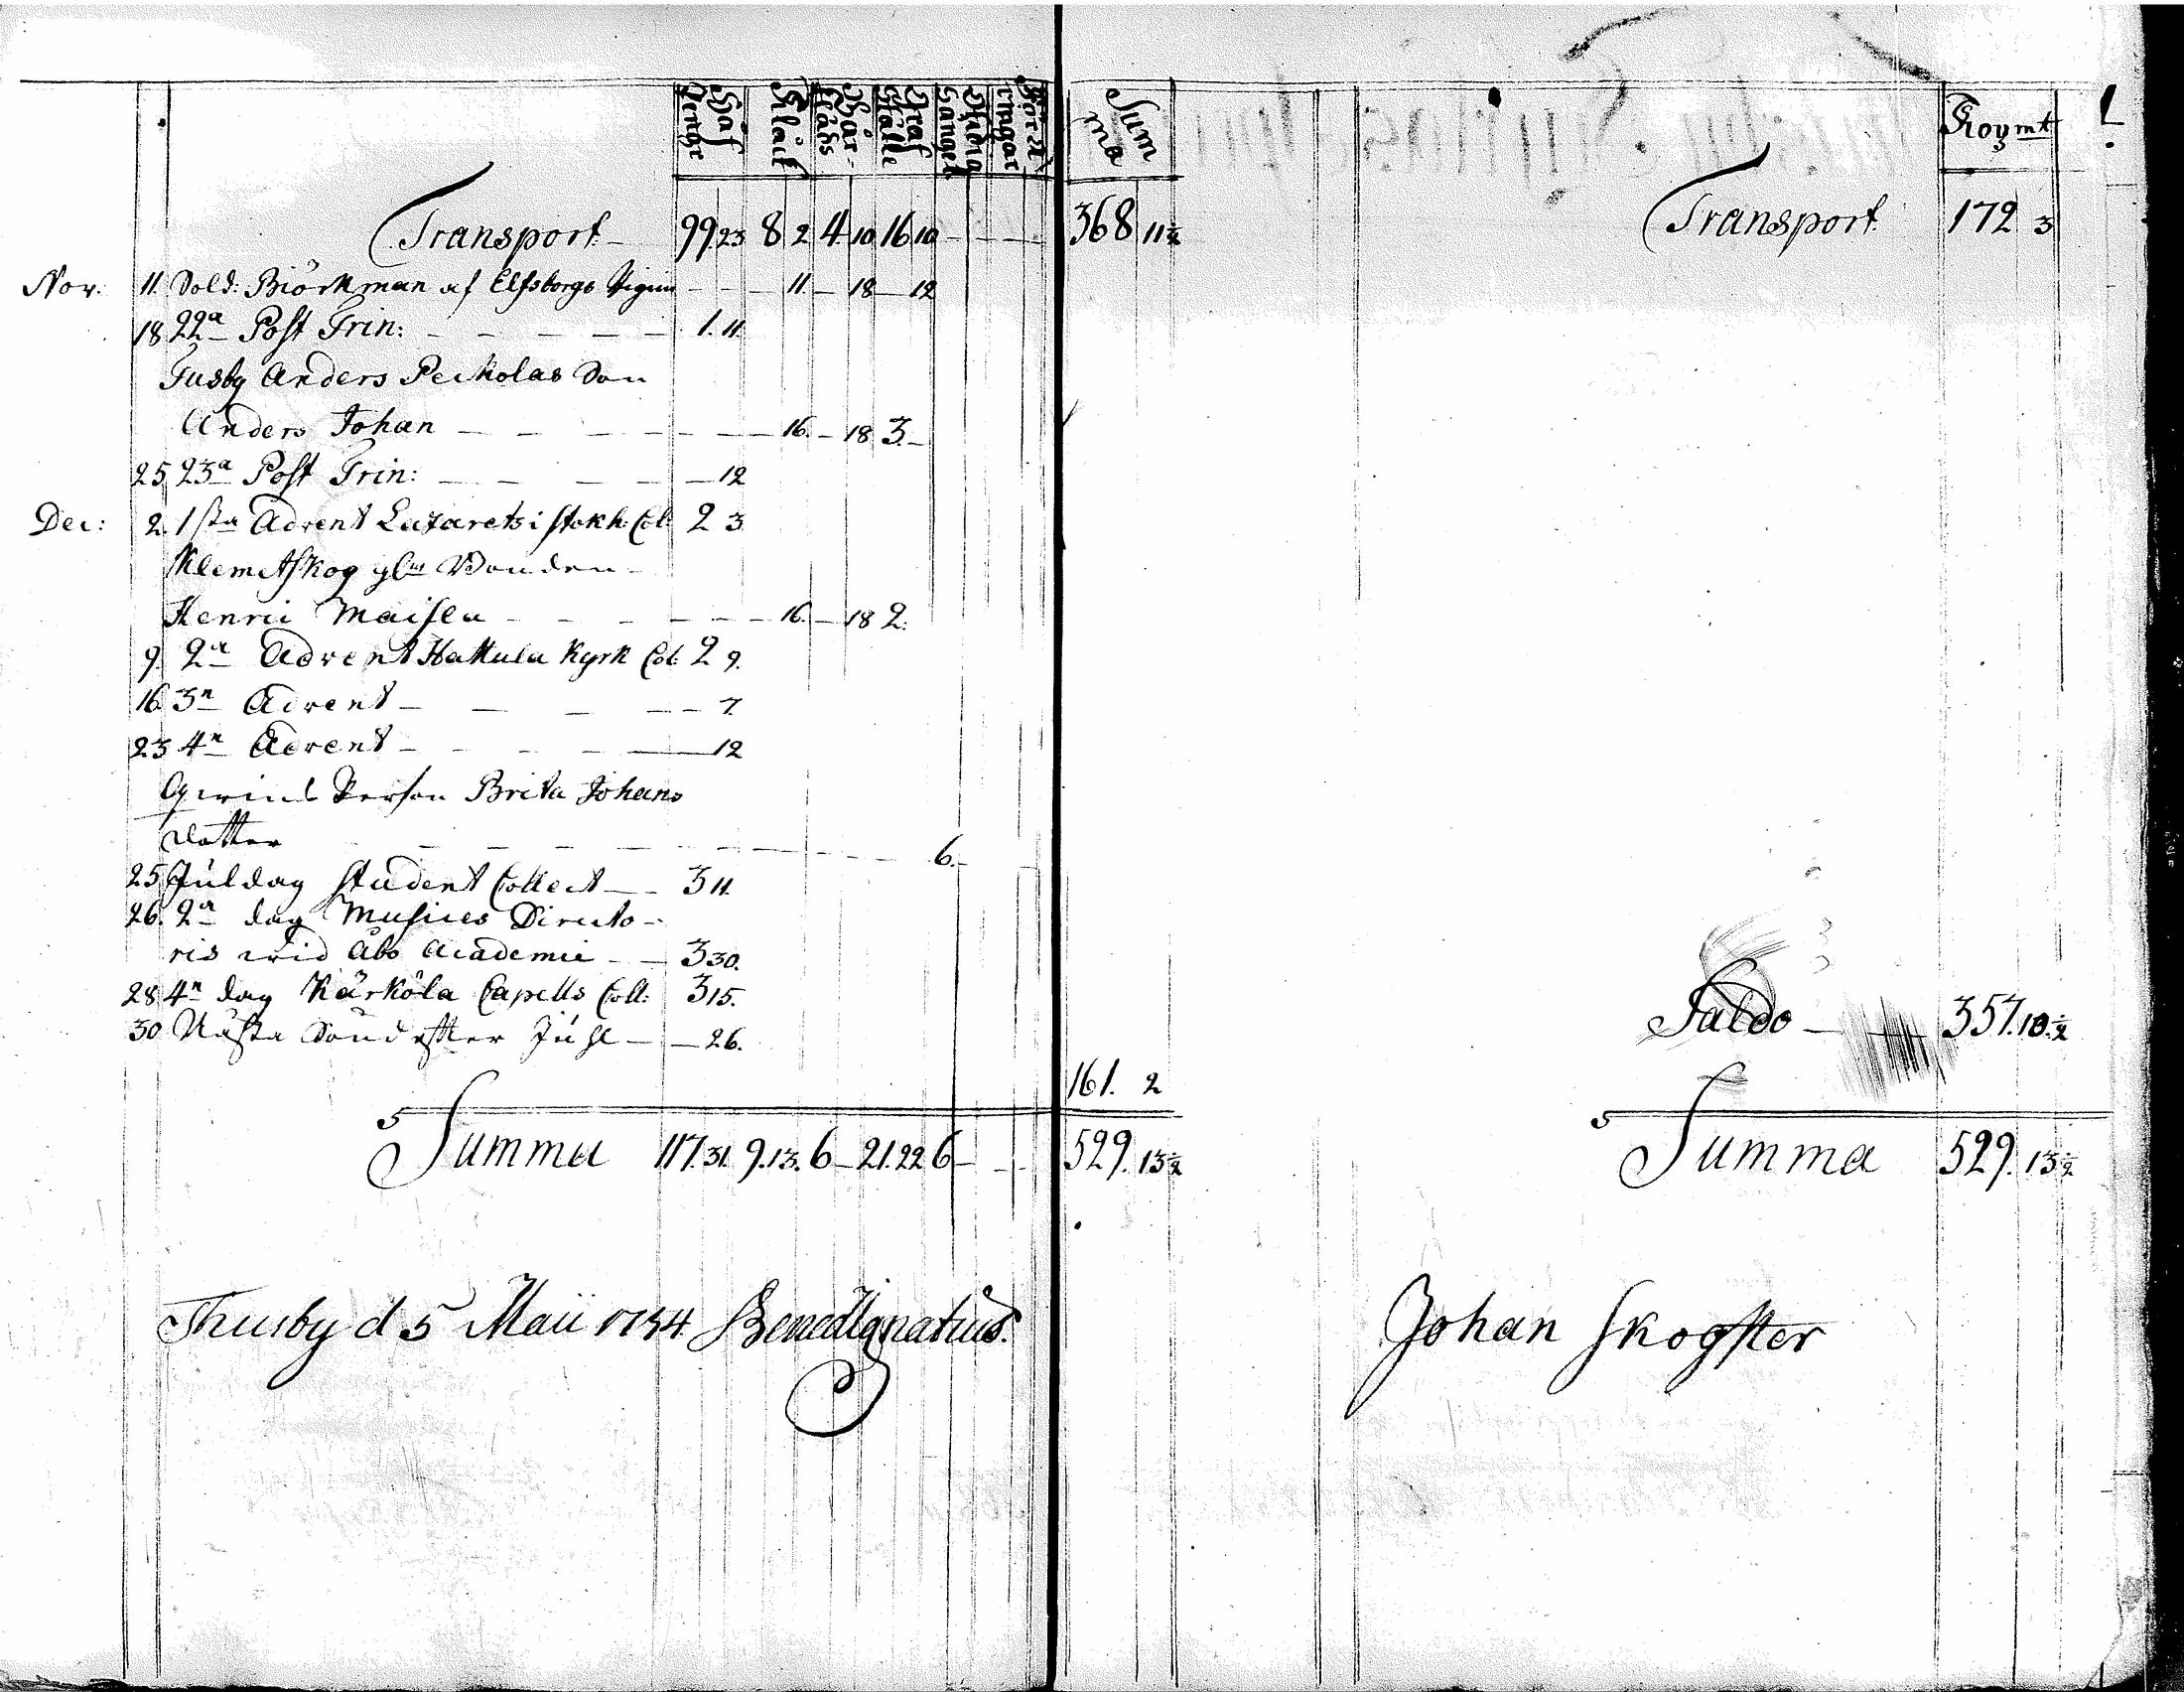 Håf Penge Klåck Bår-kläds Graf ställe Sängel Skiäng
Summa
Transport 99 23 8 2 4 10 16 10 - - - -
368 11 ½
Nov: 11. Sold: Biörkman af Elfsborgs Regim - - - 11. - 18 - 12
18 22a Post Trin: - - - - 1. 11.
Tusby Anders Peckolas Son
Anders Johan - - - - - 16. - 18 3. -
25 23a Post Trin: - - - - - 12
Dec: 2. 1sta Advent Lazarets i Stokh: Col: 2 3
Klemetskog Bonden
Henric Maisen - - - - - 16. - 18 2.
9. 2a Advent Hattula Kyrk Col: 2 9.
16 3a Advent - - - - - 7.
23 4a Advent - - - - 12
Person Brita Johans
dotter - - - - - - - - 6. -
25 Juldag Student Collect - - 3 11.
26. 2a dag Musices Directo-
ris wid Åbo Academie - - 3 30.
28 4a dag Kärköla Capells Coll: 3 15.
30 Nästa Sönd efter Juhl - - 26.
161. 2
Summa 117. 31. 9. 13. 6 - 21. 22 6 - - -
529. 13 ½
Thusby d 5 Maii 1754. Bened Ignatius.
Kop mt
Transport 172 3
Saldo - - 357. 10. ½
Summa 529. 13 ½
Johan Skogster